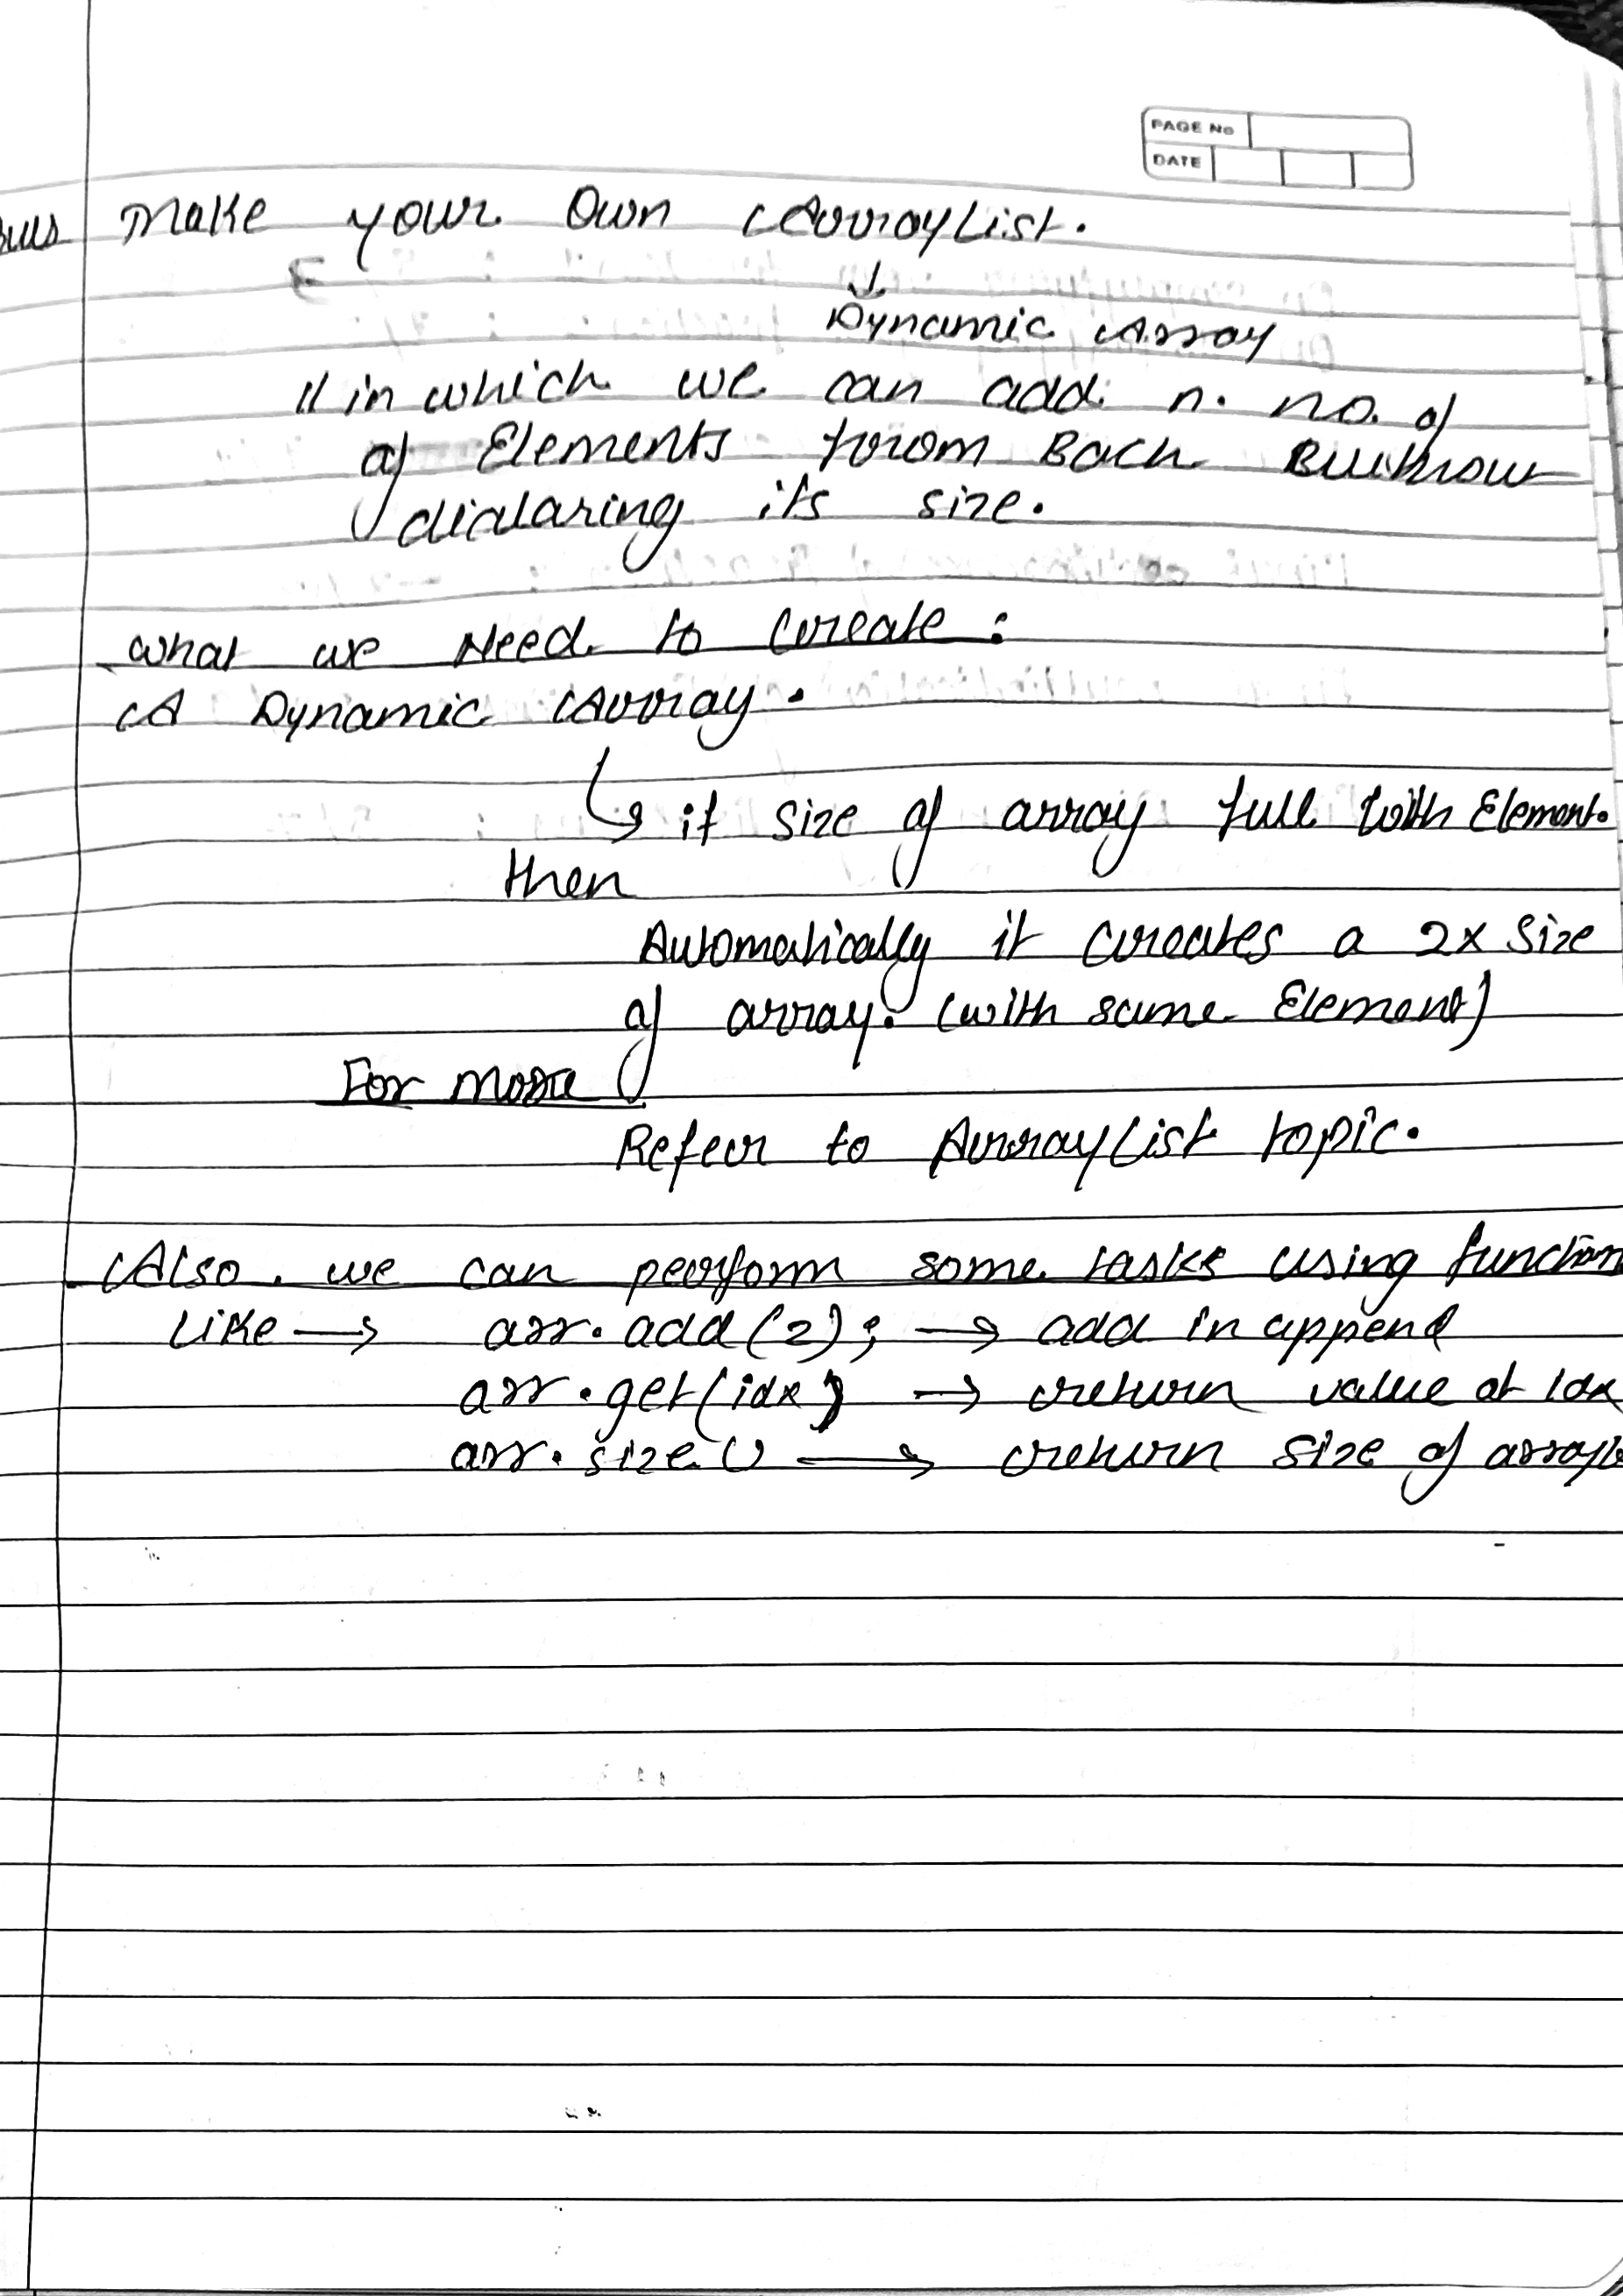 PAGE No
DATE
Make your Own ArrayList.
Dynamic Array
// in which we can add n. no. of
of Elements from Back
dialaring its size.
What we Need to Create :
A Dynamic Array.
if size of array full with Element.
then
Automatically it creates a 2x Size
of array. (with same Element)
For more
Refer to ArrayList topic.
Also, we can perform some tasks using function
Like → arr.add(2); → add in append
arr.get(idx) → return value at idx
arr.size() → return size of